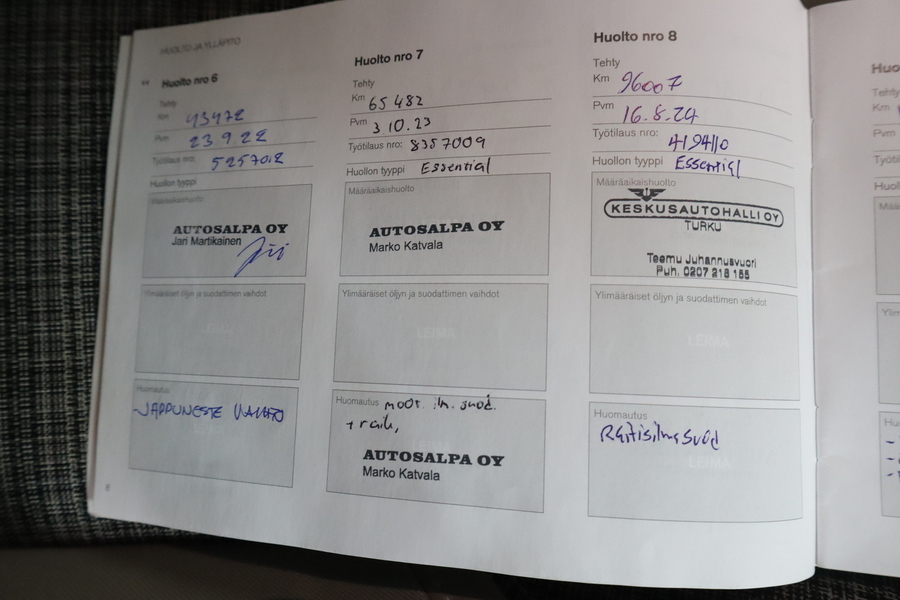 HUOLTO JA YLLÄPITO
Huolto nro 6
Tehty
Km 43472
Pvm 23.9.22
Työtilaus nro: 5257012
Huollon tyyppi
Määräaikaishuolto
AUTOSALPA OY
Jari Martikainen
Ylimääräiset öljyn ja suodattimen vaihdot
LEIMA
Huomautus
JARRUNESTE VAIHTO
8
Huolto nro 7
Tehty
Km 65482
Pvm 3 10.23
Työtilaus nro: 8357009
Huollon tyyppi Essential
Määräaikaishuolto
AUTOSALPA OY
Marko Katvala
Ylimääräiset öljyn ja suodattimen vaihdot
LEIMA
Huomautus moot. ilm. suod.
+ raik,
AUTOSALPA OY
Marko Katvala
Huolto nro 8
Tehty
Km 96007
Pvm 16.8.24
Työtilaus nro: 4194110
Huollon tyyppi Essential
Määräaikaishuolto
KESKUSAUTOHALLI OY
TURKU
Teemu Juhannusvuori
Puh. 0207 218 165
Ylimääräiset öljyn ja suodattimen vaihdot
LEIMA
Huomautus
Raitisilmasuod
LEIMA